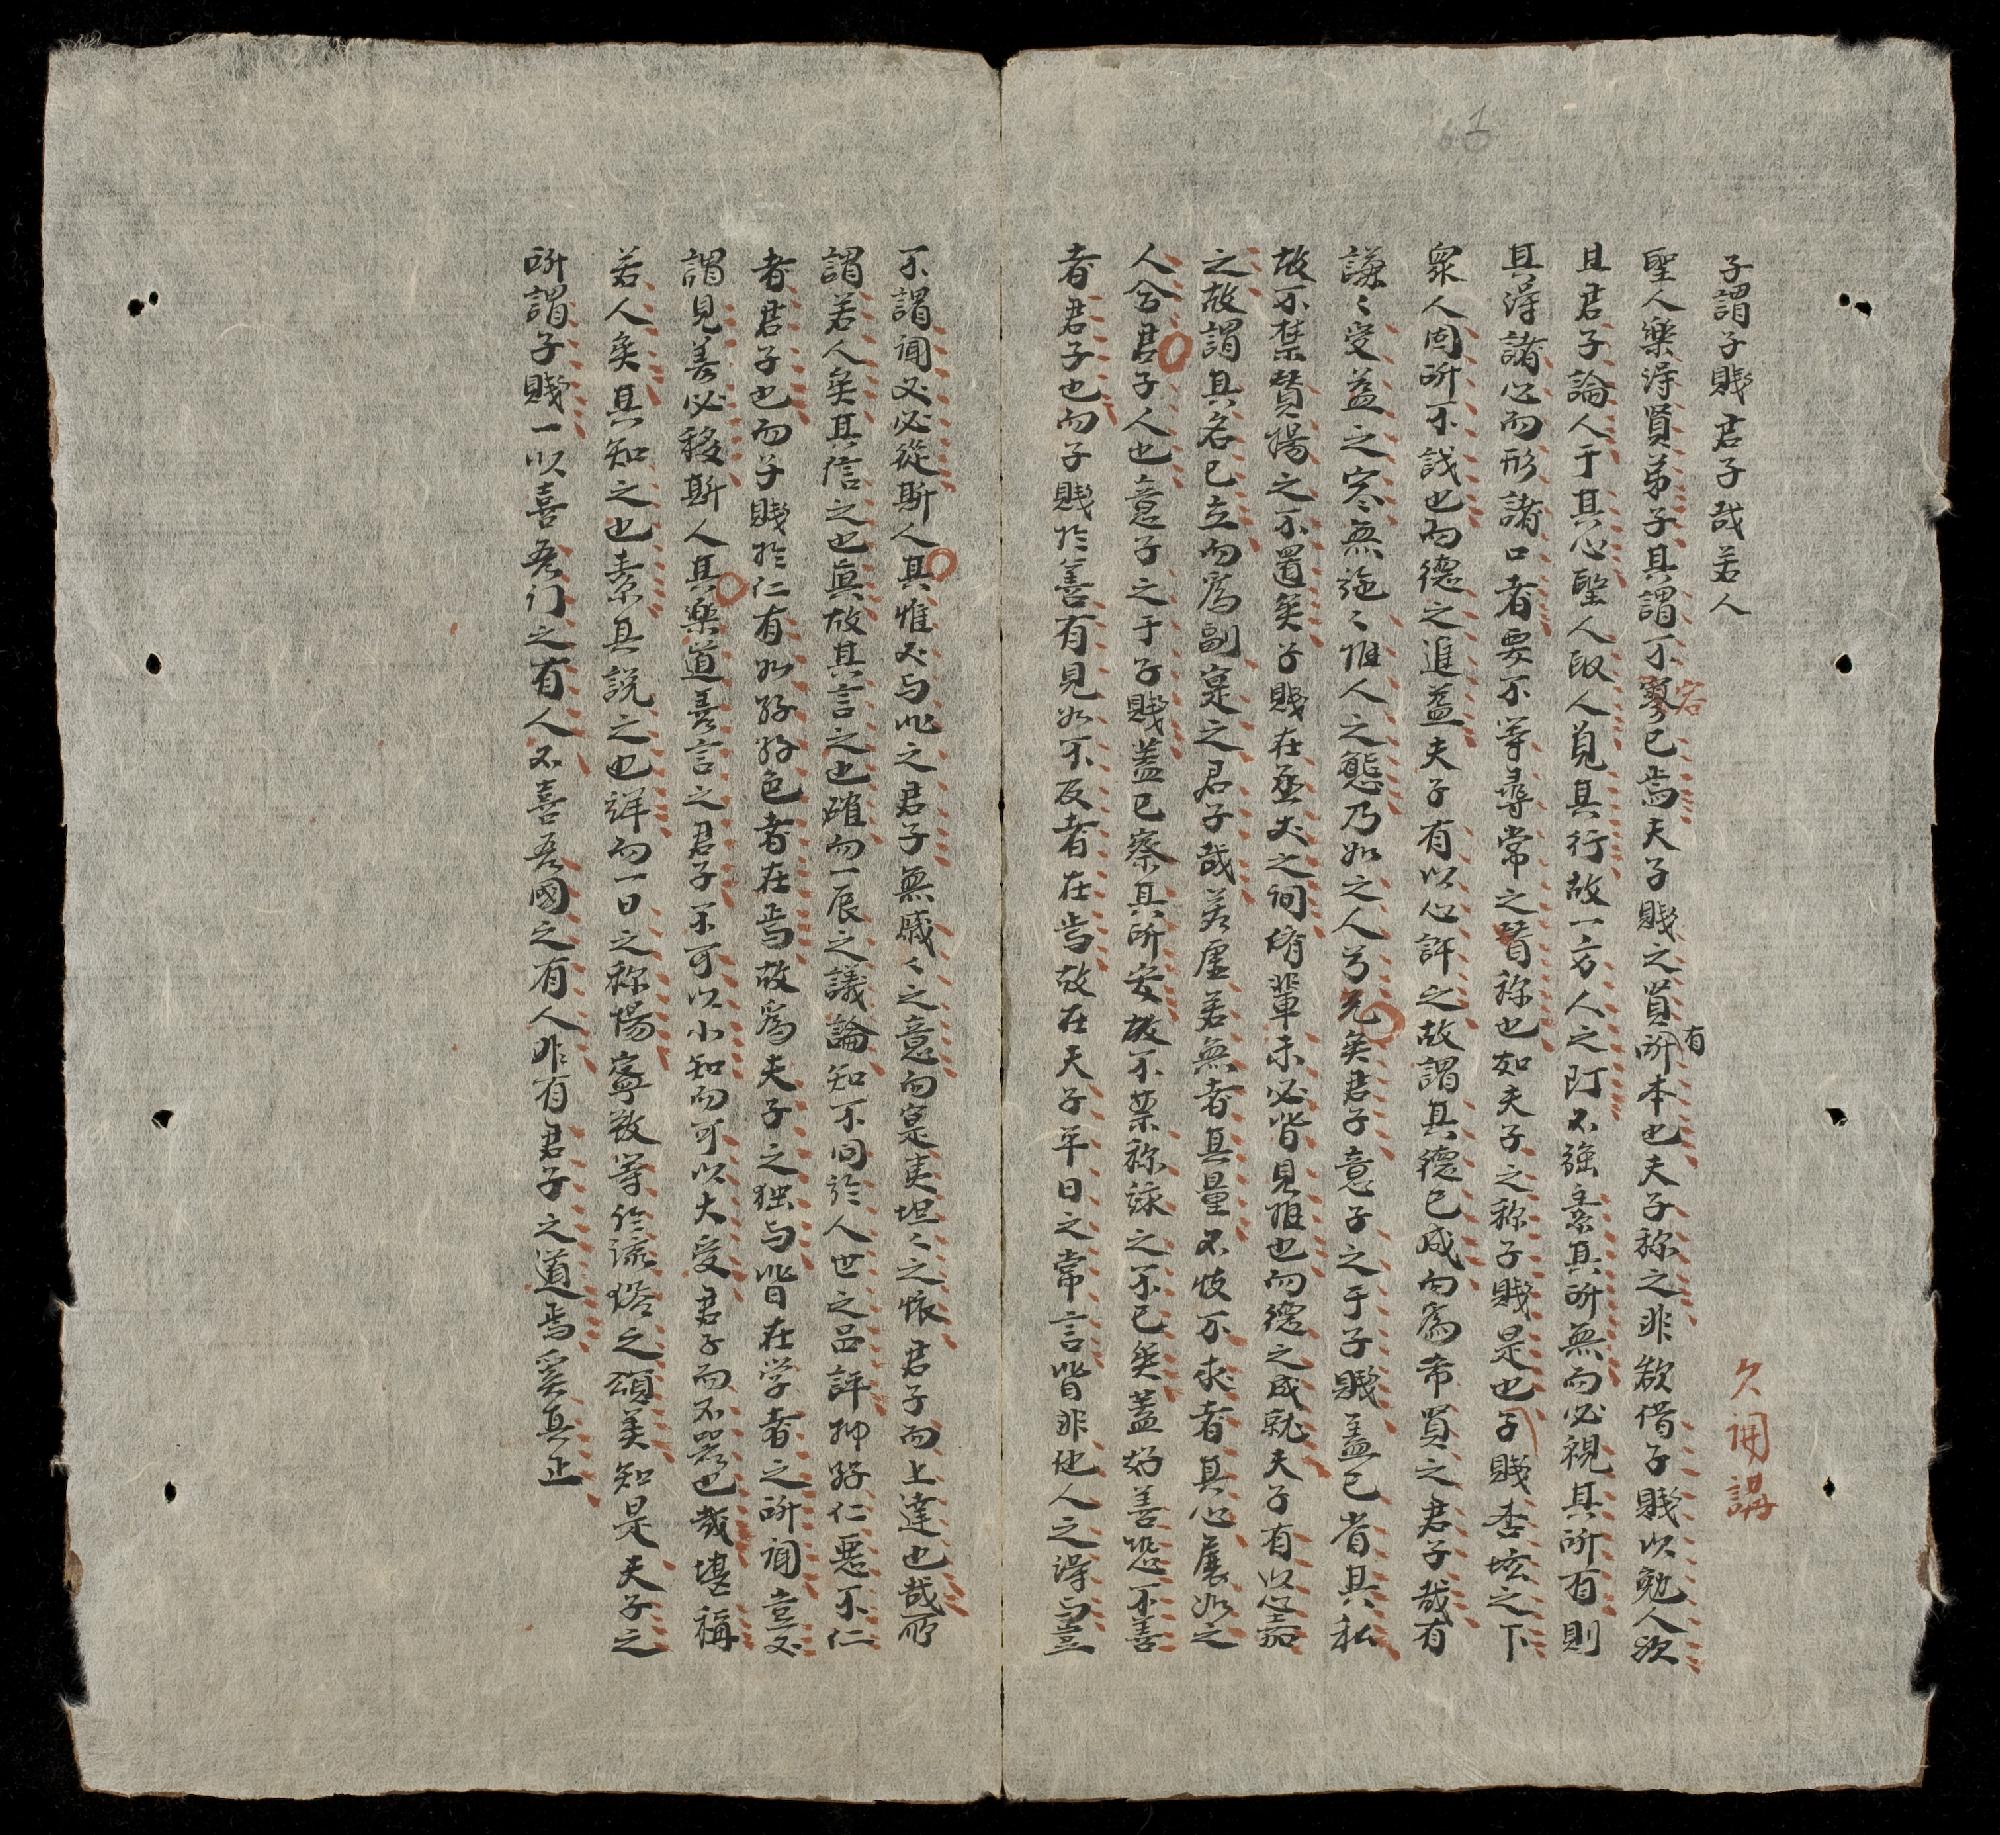 子謂子賤君子哉若人
久開講
聖人樂得賢弟子其謂不容已焉夫子賤之賢有所本也夫子称之非欲借子賤以勉人欤
且君子論人于其心聖人取人觅其行故一方人之所不強素其所無而必視其所有則
其得諸心而形諸口者要不等尋常之賛称也如夫子之称子賤是也子賤杏坛之下
衆人固所不識也而德之進益夫子有以心許之故謂其德已成而為希賢之君子哉有
謙〻受益之容無施〻惟人之態乃如之人兮允矣君子意子之于子賤盖已省其私
故不禁賛揚之不置矣子賤在丞丈之间侪輩未必皆見推也而德之成就夫子有以心嘉
之故謂其名已立而為副寔之君子哉若虛若無者其量不忮不求者其心展如之
人兮君子人也意子之于子賤蓋已察其所安故不禁称詠之不已矣蓋好善嫉不善
者君子也而子賤於善有見如不及者在焉故在夫子平日之常言皆非他人之得与豈
不謂闻义必從斯人其惟义与比之君子無戚〻之意而寔吏坦〻之懷君子而上達也哉所
謂若人矣其信之也真故其言之也確而一辰之議論知不同於人世之品評抑好仁悪不仁
者君子也而子賤於仁有如好好色者在焉故為夫子之独与皆在学者之所闻豈不
謂見善必移斯人其樂道善言之君子不可以小知而可以大受君子而不器也哉堪稱
若人矣其知之也素其説之也詳而一日之称揚寧敢等於流俗之頌美知是夫子之
所謂子賤一以喜吾门之有人不喜吾國之有人非有君子之道焉奚真止